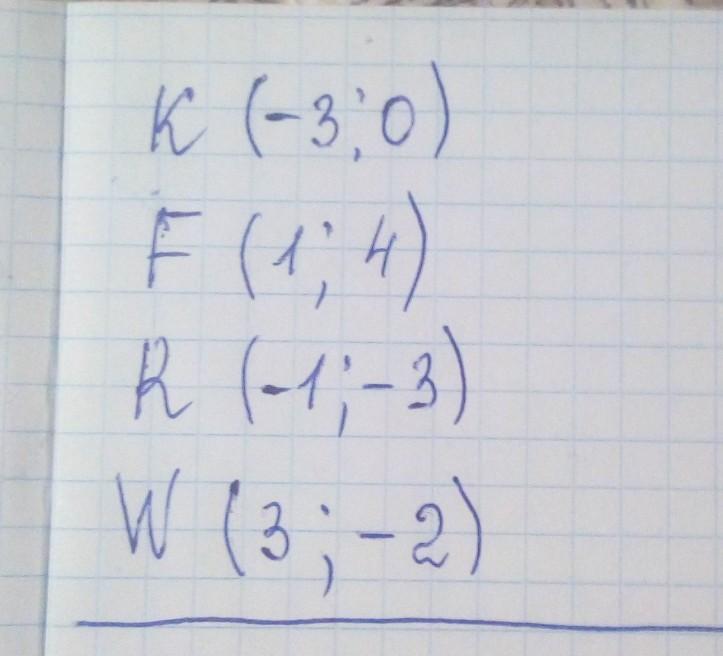 K (-3; 0)
F (1; 4)
R (-1; -3)
W (3; -2)